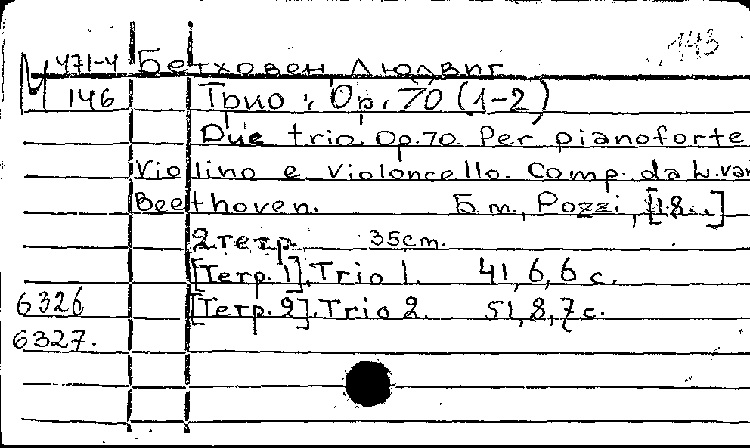 143
М 471-4 Бетховен, Людвиг
146 Трио: Op. 70 (1-2)
Due trio. Op.70. Per pianoforte
Violino e violoncello. Comp. da L. van
Beethoven. Б.m., Pozzi, [18..]
2 тетр. 35cm.
[Тетр. 1]. Trio 1. 41, 6, 6 с.
6326 [Тетр. 2]. Trio 2. 51, 8, 7 с.
6327.